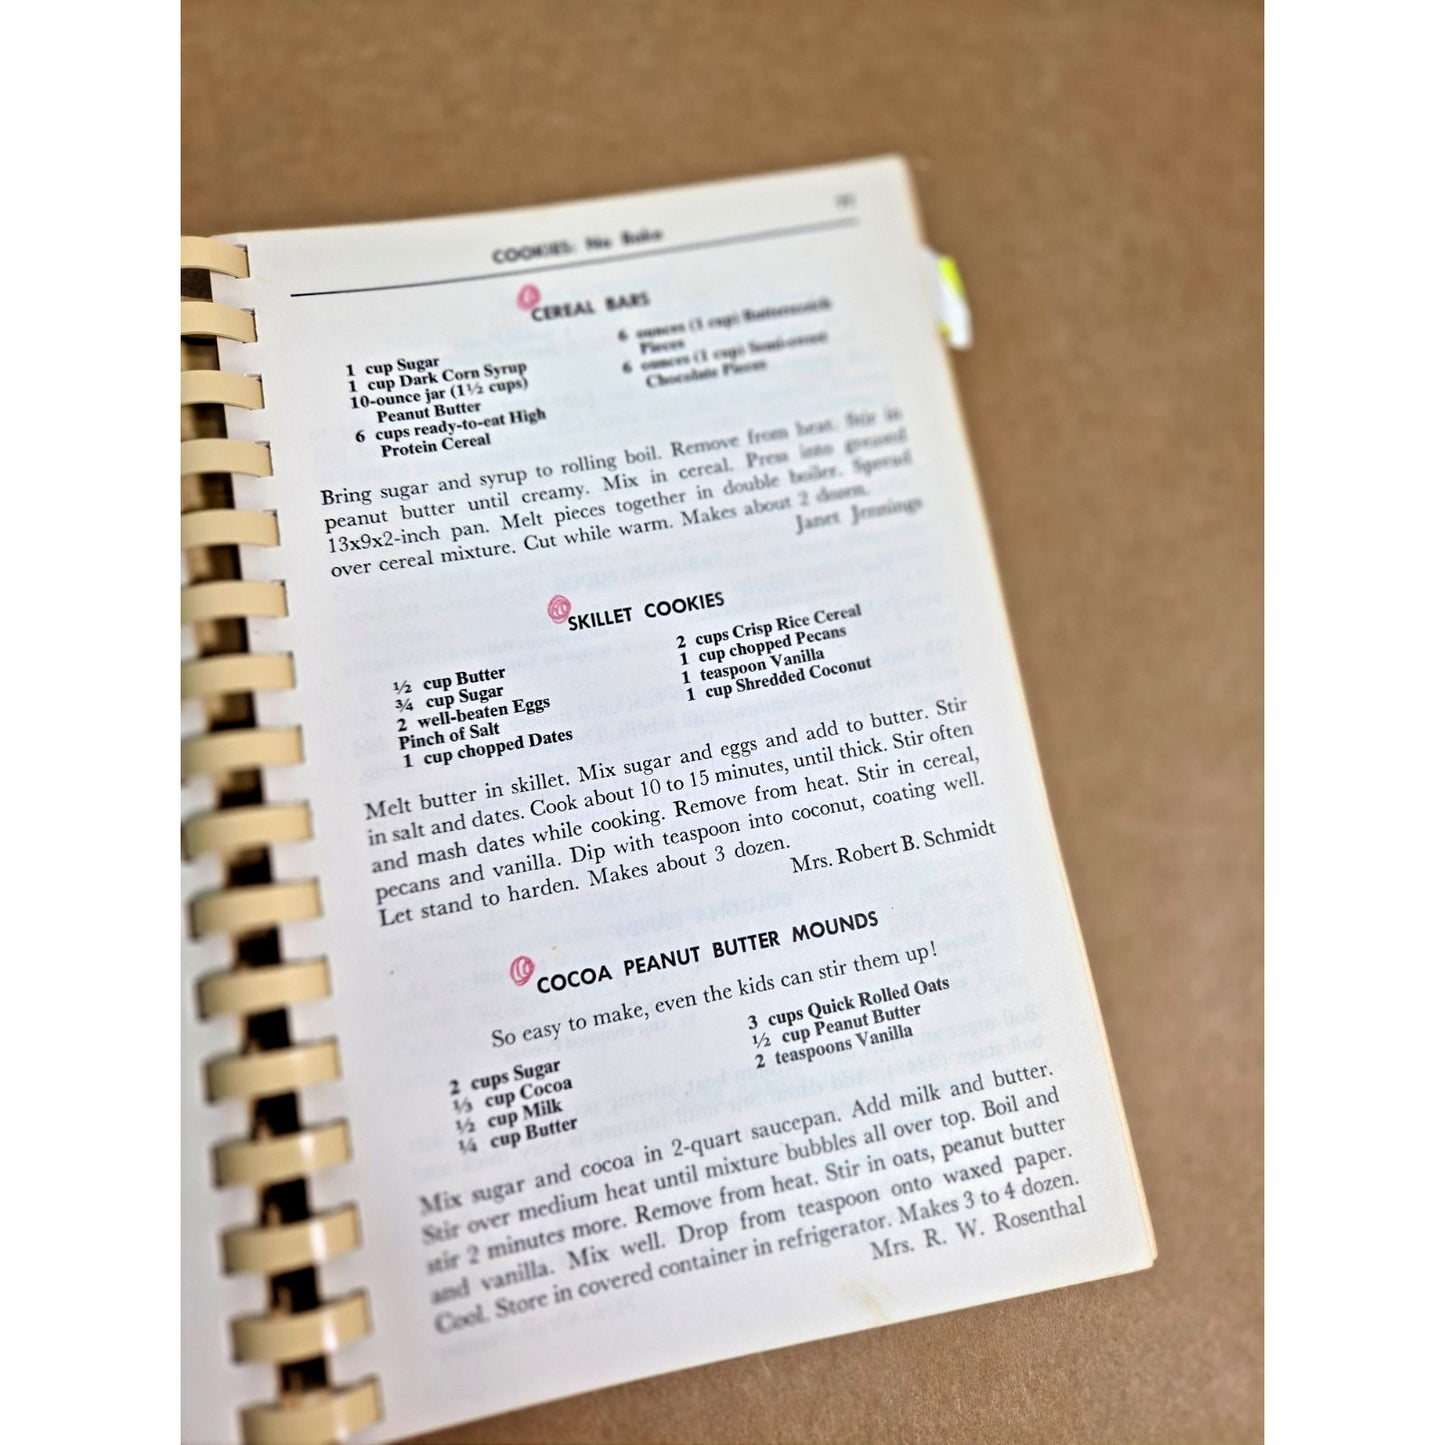 COOKIES: No Bake
CEREAL BARS
1 cup Sugar
1 cup Dark Corn Syrup
10-ounce jar (1½ cups)
Peanut Butter
6 cups ready-to-eat High
Protein Cereal
6 ounces (1 cup) Butterscotch
Pieces
6 ounces (1 cup) Semi-sweet
Chocolate Pieces
Bring sugar and syrup to rolling boil. Remove from heat. Stir in
peanut butter until creamy. Mix in cereal. Press into greased
13x9x2-inch pan. Melt pieces together in double boiler. Spread
over cereal mixture. Cut while warm. Makes about 2 dozen.
Janet Jennings
SKILLET COOKIES
½ cup Butter
¾ cup Sugar
2 well-beaten Eggs
Pinch of Salt
1 cup chopped Dates
2 cups Crisp Rice Cereal
1 cup chopped Pecans
1 teaspoon Vanilla
1 cup Shredded Coconut
Melt butter in skillet. Mix sugar and eggs and add to butter. Stir
in salt and dates. Cook about 10 to 15 minutes, until thick. Stir often
and mash dates while cooking. Remove from heat. Stir in cereal,
pecans and vanilla. Dip with teaspoon into coconut, coating well.
Let stand to harden. Makes about 3 dozen.
Mrs. Robert B. Schmidt
COCOA PEANUT BUTTER MOUNDS
So easy to make, even the kids can stir them up!
2 cups Sugar
⅓ cup Cocoa
½ cup Milk
¼ cup Butter
3 cups Quick Rolled Oats
½ cup Peanut Butter
2 teaspoons Vanilla
Mix sugar and cocoa in 2-quart saucepan. Add milk and butter.
Stir over medium heat until mixture bubbles all over top. Boil and
stir 2 minutes more. Remove from heat. Stir in oats, peanut butter
and vanilla. Mix well. Drop from teaspoon onto waxed paper.
Cool. Store in covered container in refrigerator. Makes 3 to 4 dozen.
Mrs. R. W. Rosenthal